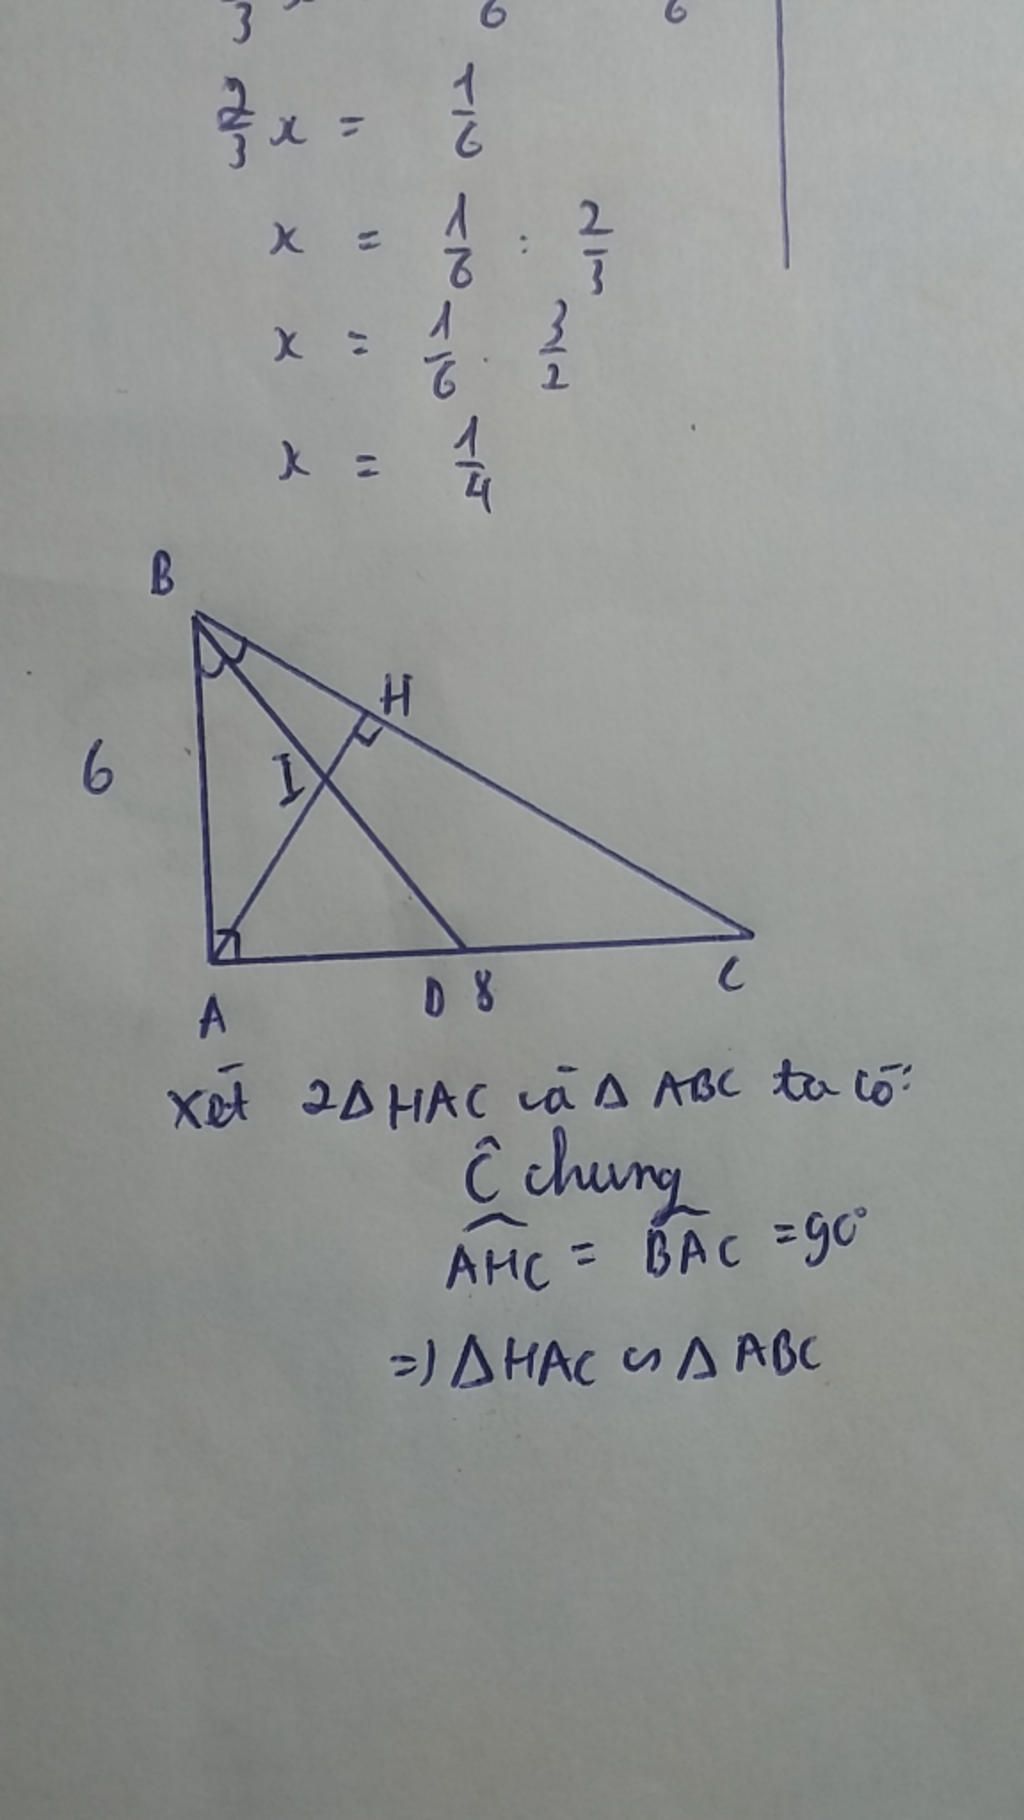 3 6 6
2/3 x = 1/6
x = 1/6 : 2/3
x = 1/6 . 3/2
x = 1/4
B
H
6
I
A
D 8
C
Xét 2Δ HAC và Δ ABC ta có:
Ĉ chung
AHC = BAC = 90°
=) Δ HAC ∽ Δ ABC